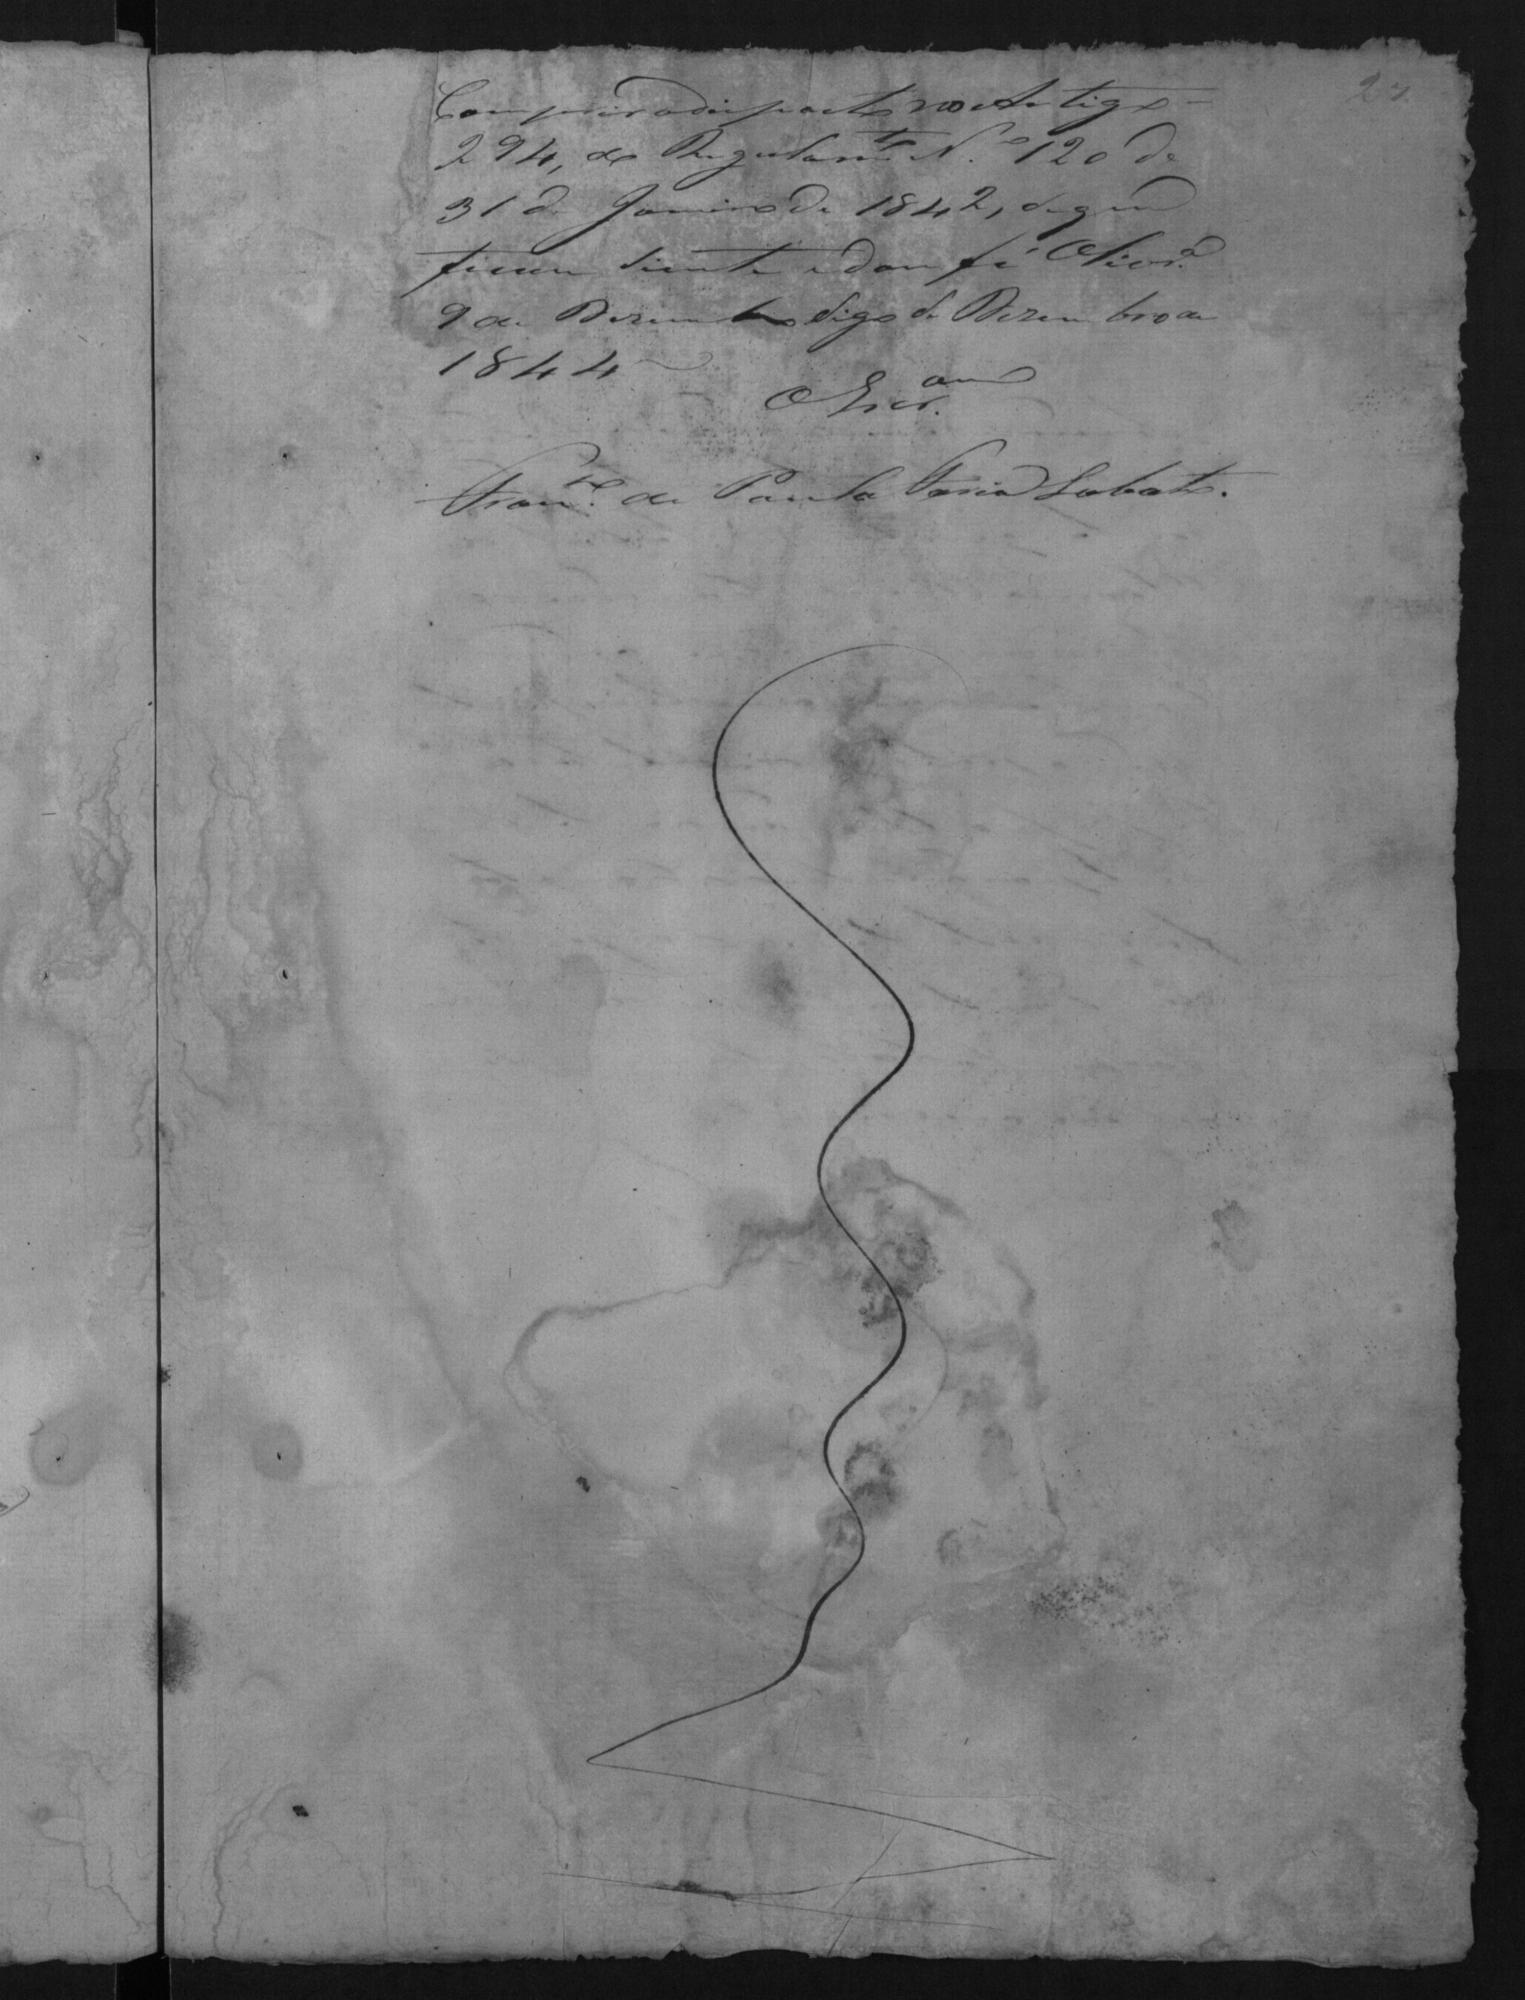 27.
Comprir odisposto no Artigo -
294, do Regulam.to N.º 120 de
31 de Janeiro de 1842, de que
ficou siente e dou fé
9 de Dezembro digo de Dezembro de
1844
O Escr.am
Fran.co de Paula Faria Lobato.